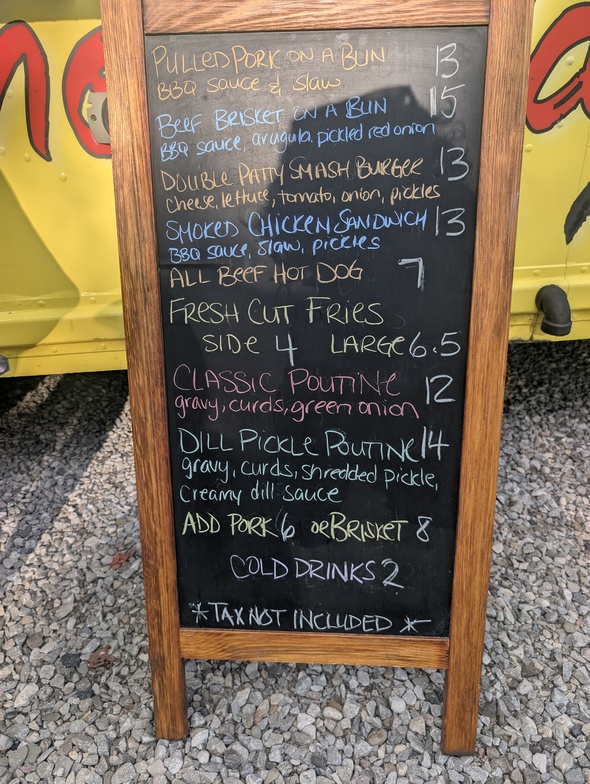 PULLED PORK ON A BUN 13
BBQ sauce & slaw
BEEF BRISKET ON A BUN 15
BBQ sauce, arugula, pickled red onion
DOUBLE PATTY SMASH BURGER 13
cheese, lettuce, tomato, onion, pickles
SMOKED CHICKEN SANDWICH 13
BBQ sauce, slaw, pickles
ALL BEEF HOT DOG 7
FRESH CUT FRIES
SIDE 4 LARGE 6.5
CLASSIC POUTINE 12
gravy, curds, green onion
DILL PICKLE POUTINE 14
gravy, curds, shredded pickle,
creamy dill sauce
ADD PORK 6 or BRISKET 8
COLD DRINKS 2
*TAX NOT INCLUDED*